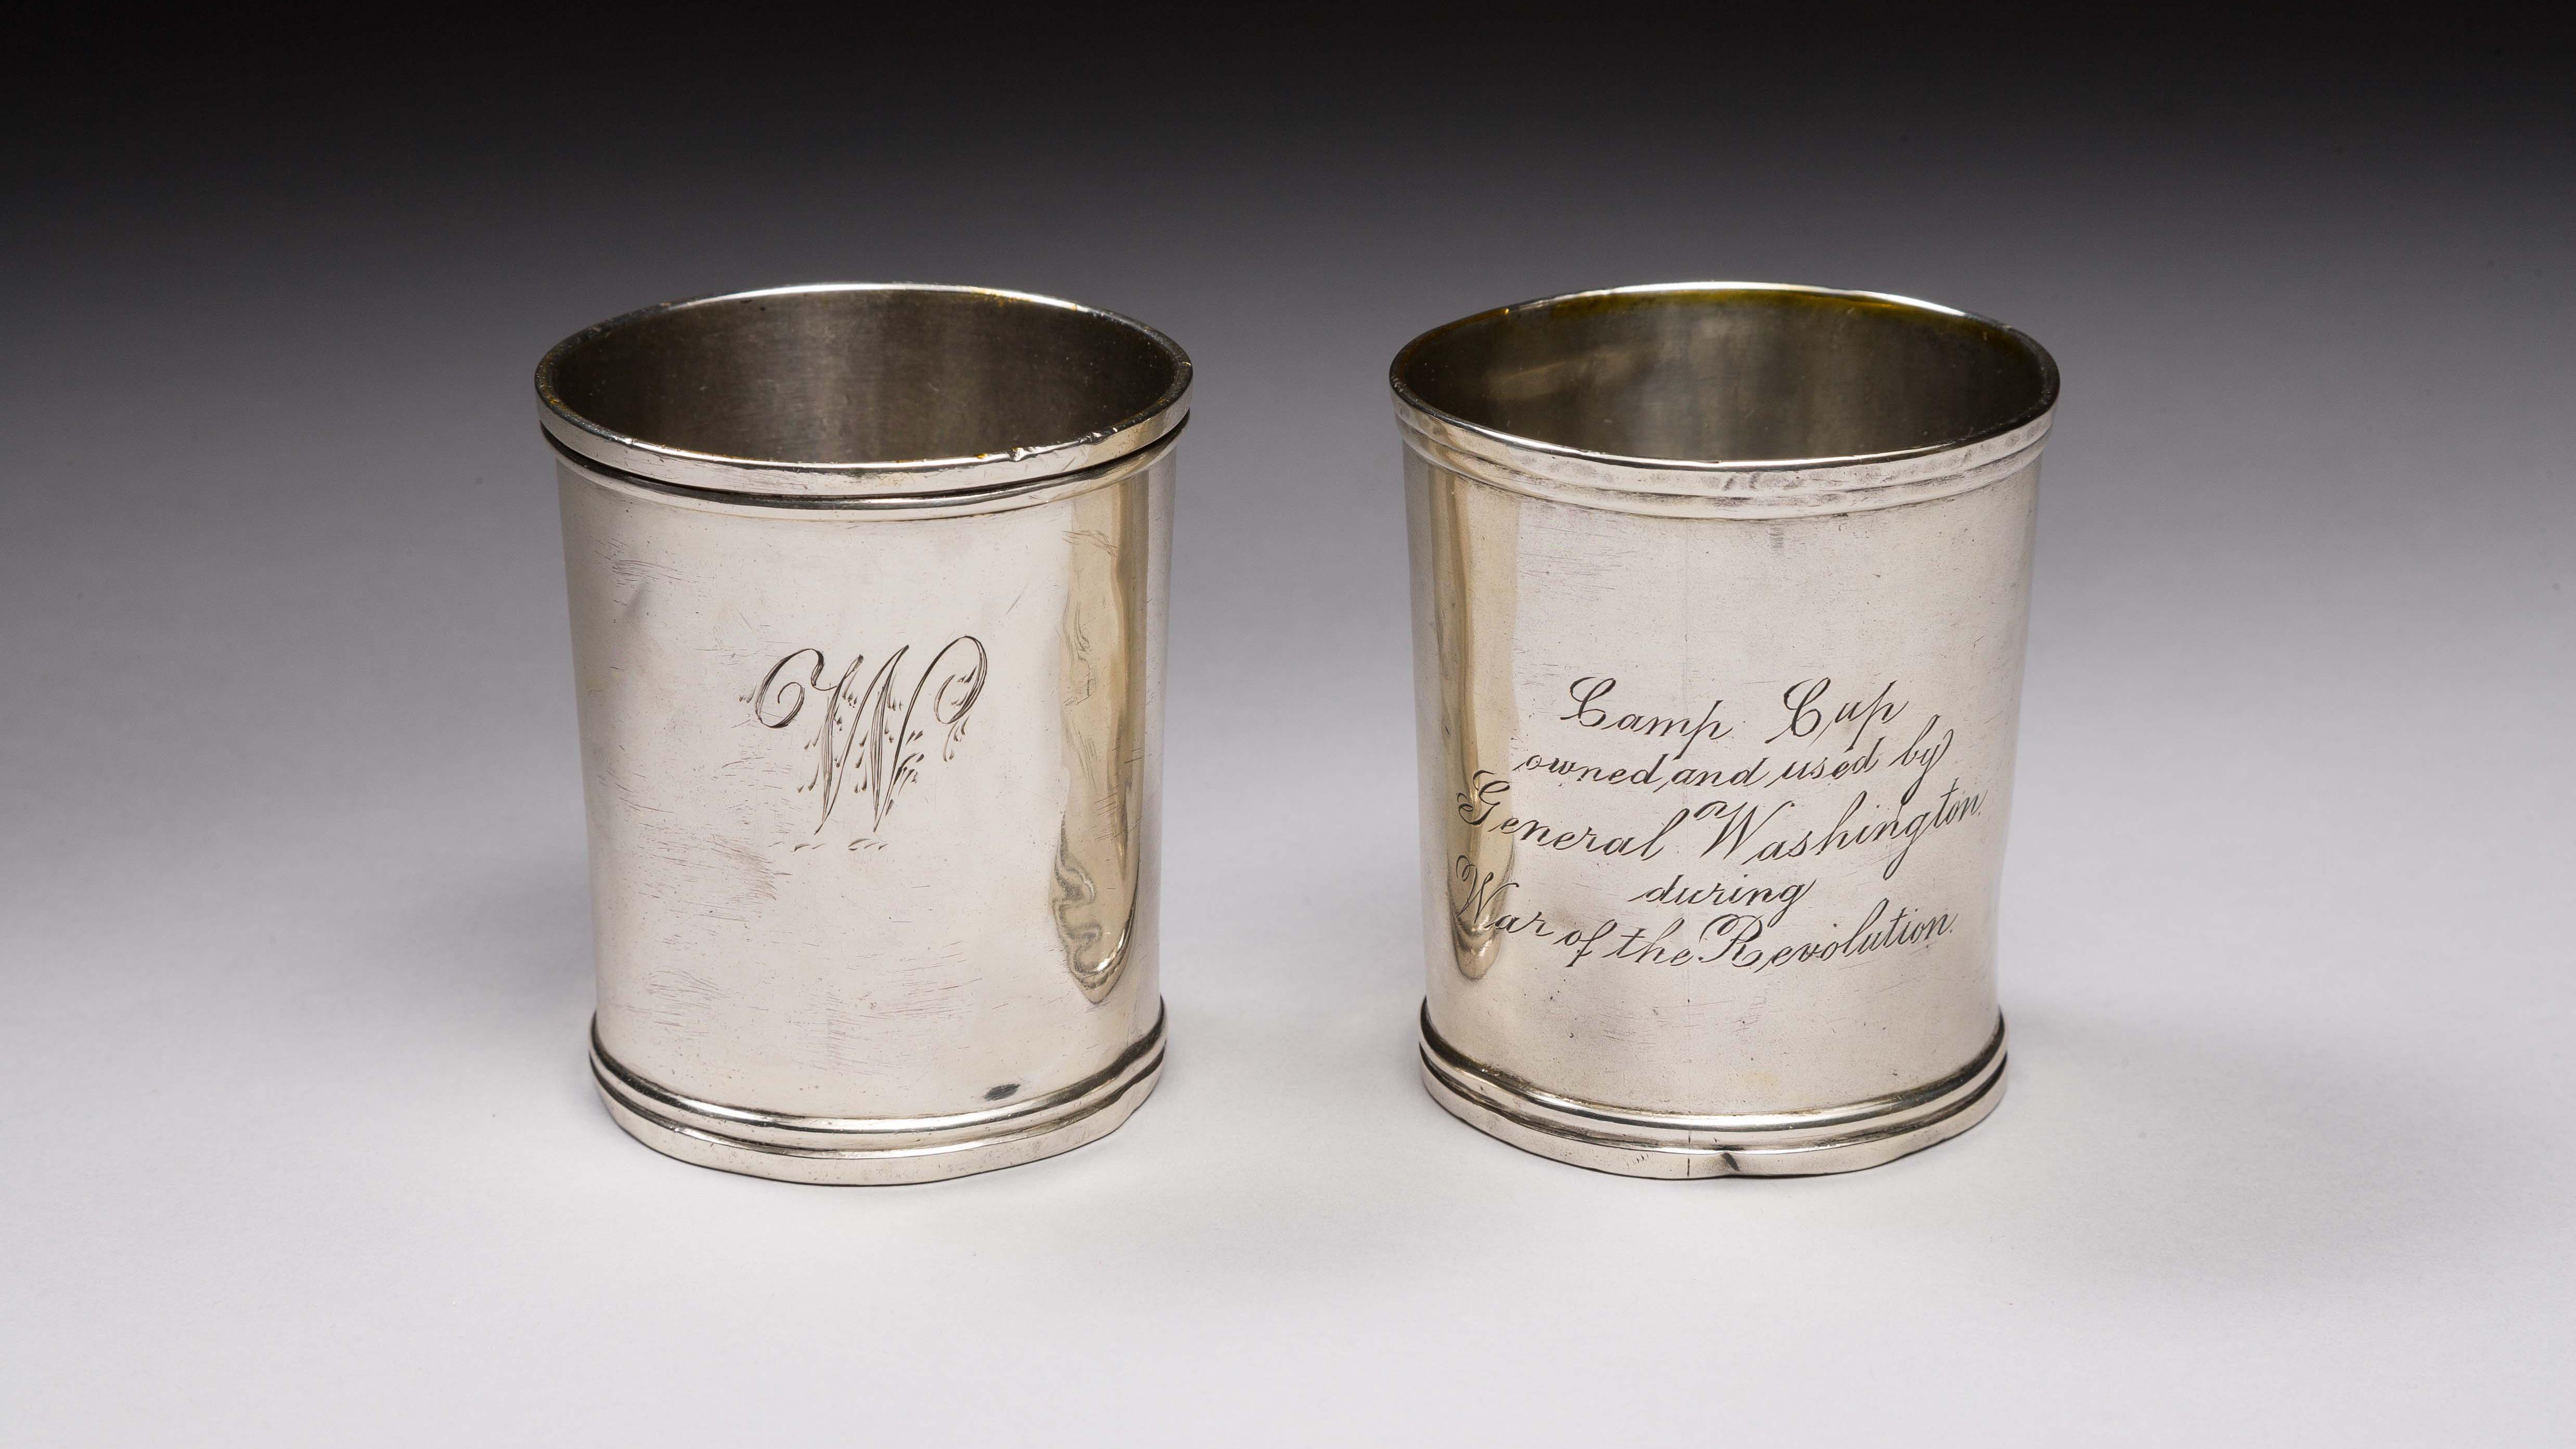 W
Camp Cup
owned and used by
General Washington
during
War of the Revolution.